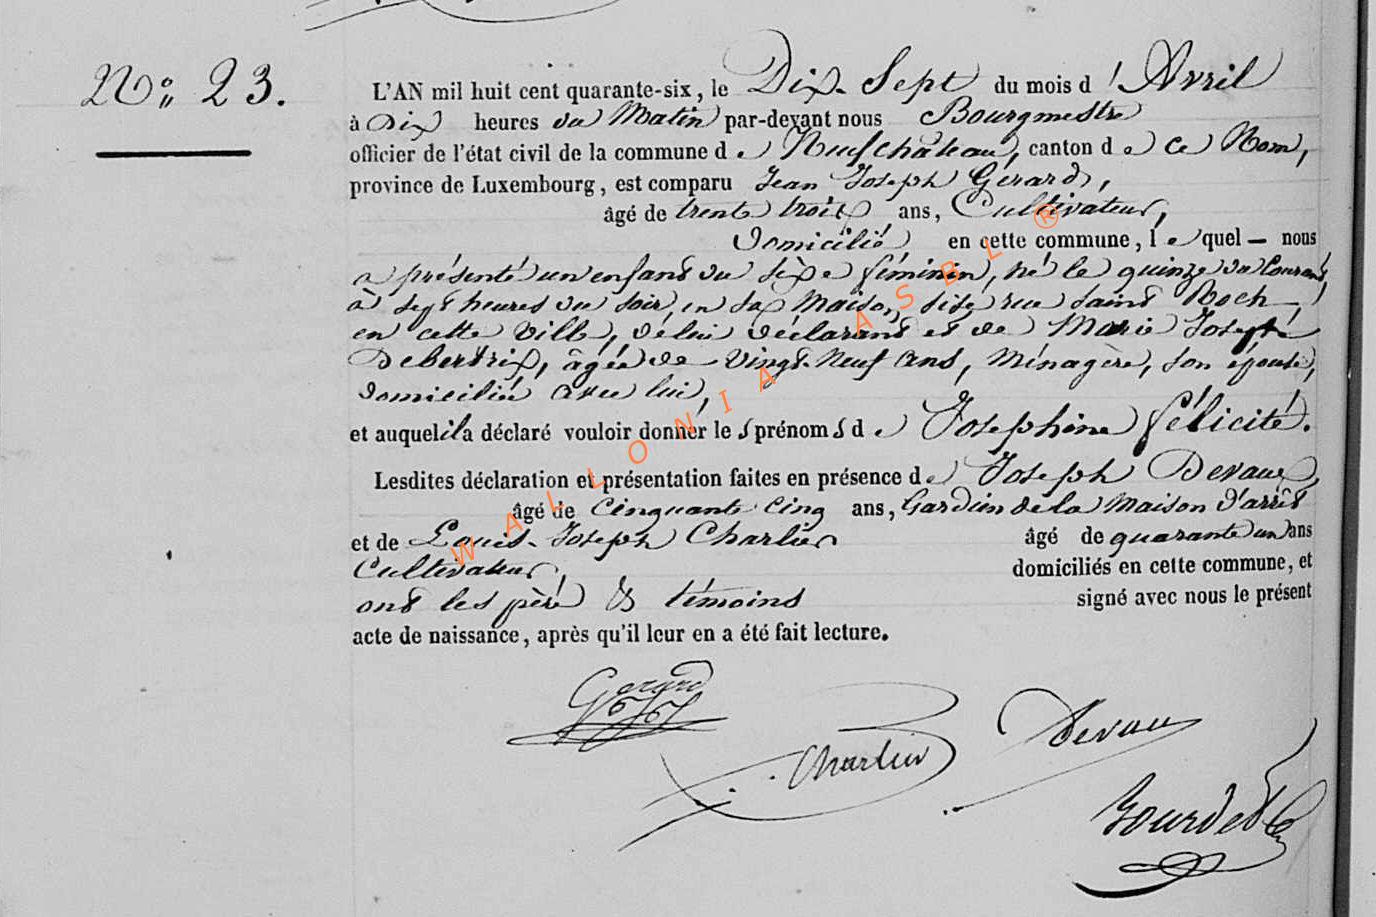 No: 23.
L'AN mil huit cent quarante-six, le Dix-Sept du mois d'Avril
à Dix heures du Matin par-devant nous Bourgmestre
officier de l'état civil de la commune de Neufchâteau, canton de ce Nom,
province de Luxembourg, est comparu Jean Joseph Gérard,
âgé de trente trois ans, Cultivateur,
Domicilié en cette commune, lequel — nous
a présenté un enfant du sèxe féminin, né le quinze du Courant,
à sept heures du soir, en sa Maison, sise rue saint Roch,
en cette Ville, de lui déclarant et de Marie Joseph
Debertrix, âgée de Vingt-Neuf ans, Ménagère, son épouse,
domiciliée avec lui,
et auquel il a déclaré vouloir donner les prénoms de Joséphine félicité.
Lesdites déclaration et présentation faites en présence de Joseph Devaux,
âgé de Cinquante Cinq ans, Gardien de la Maison d'arrêt
et de Louis-Joseph Charlier âgé de quarante un ans
Cultivateur, domiciliés en cette commune, et
ont les père & témoins signé avec nous le présent
acte de naissance, après qu'il leur en a été fait lecture.
Gerard
Charlier
Devaux
WALLONIA ASBL ®